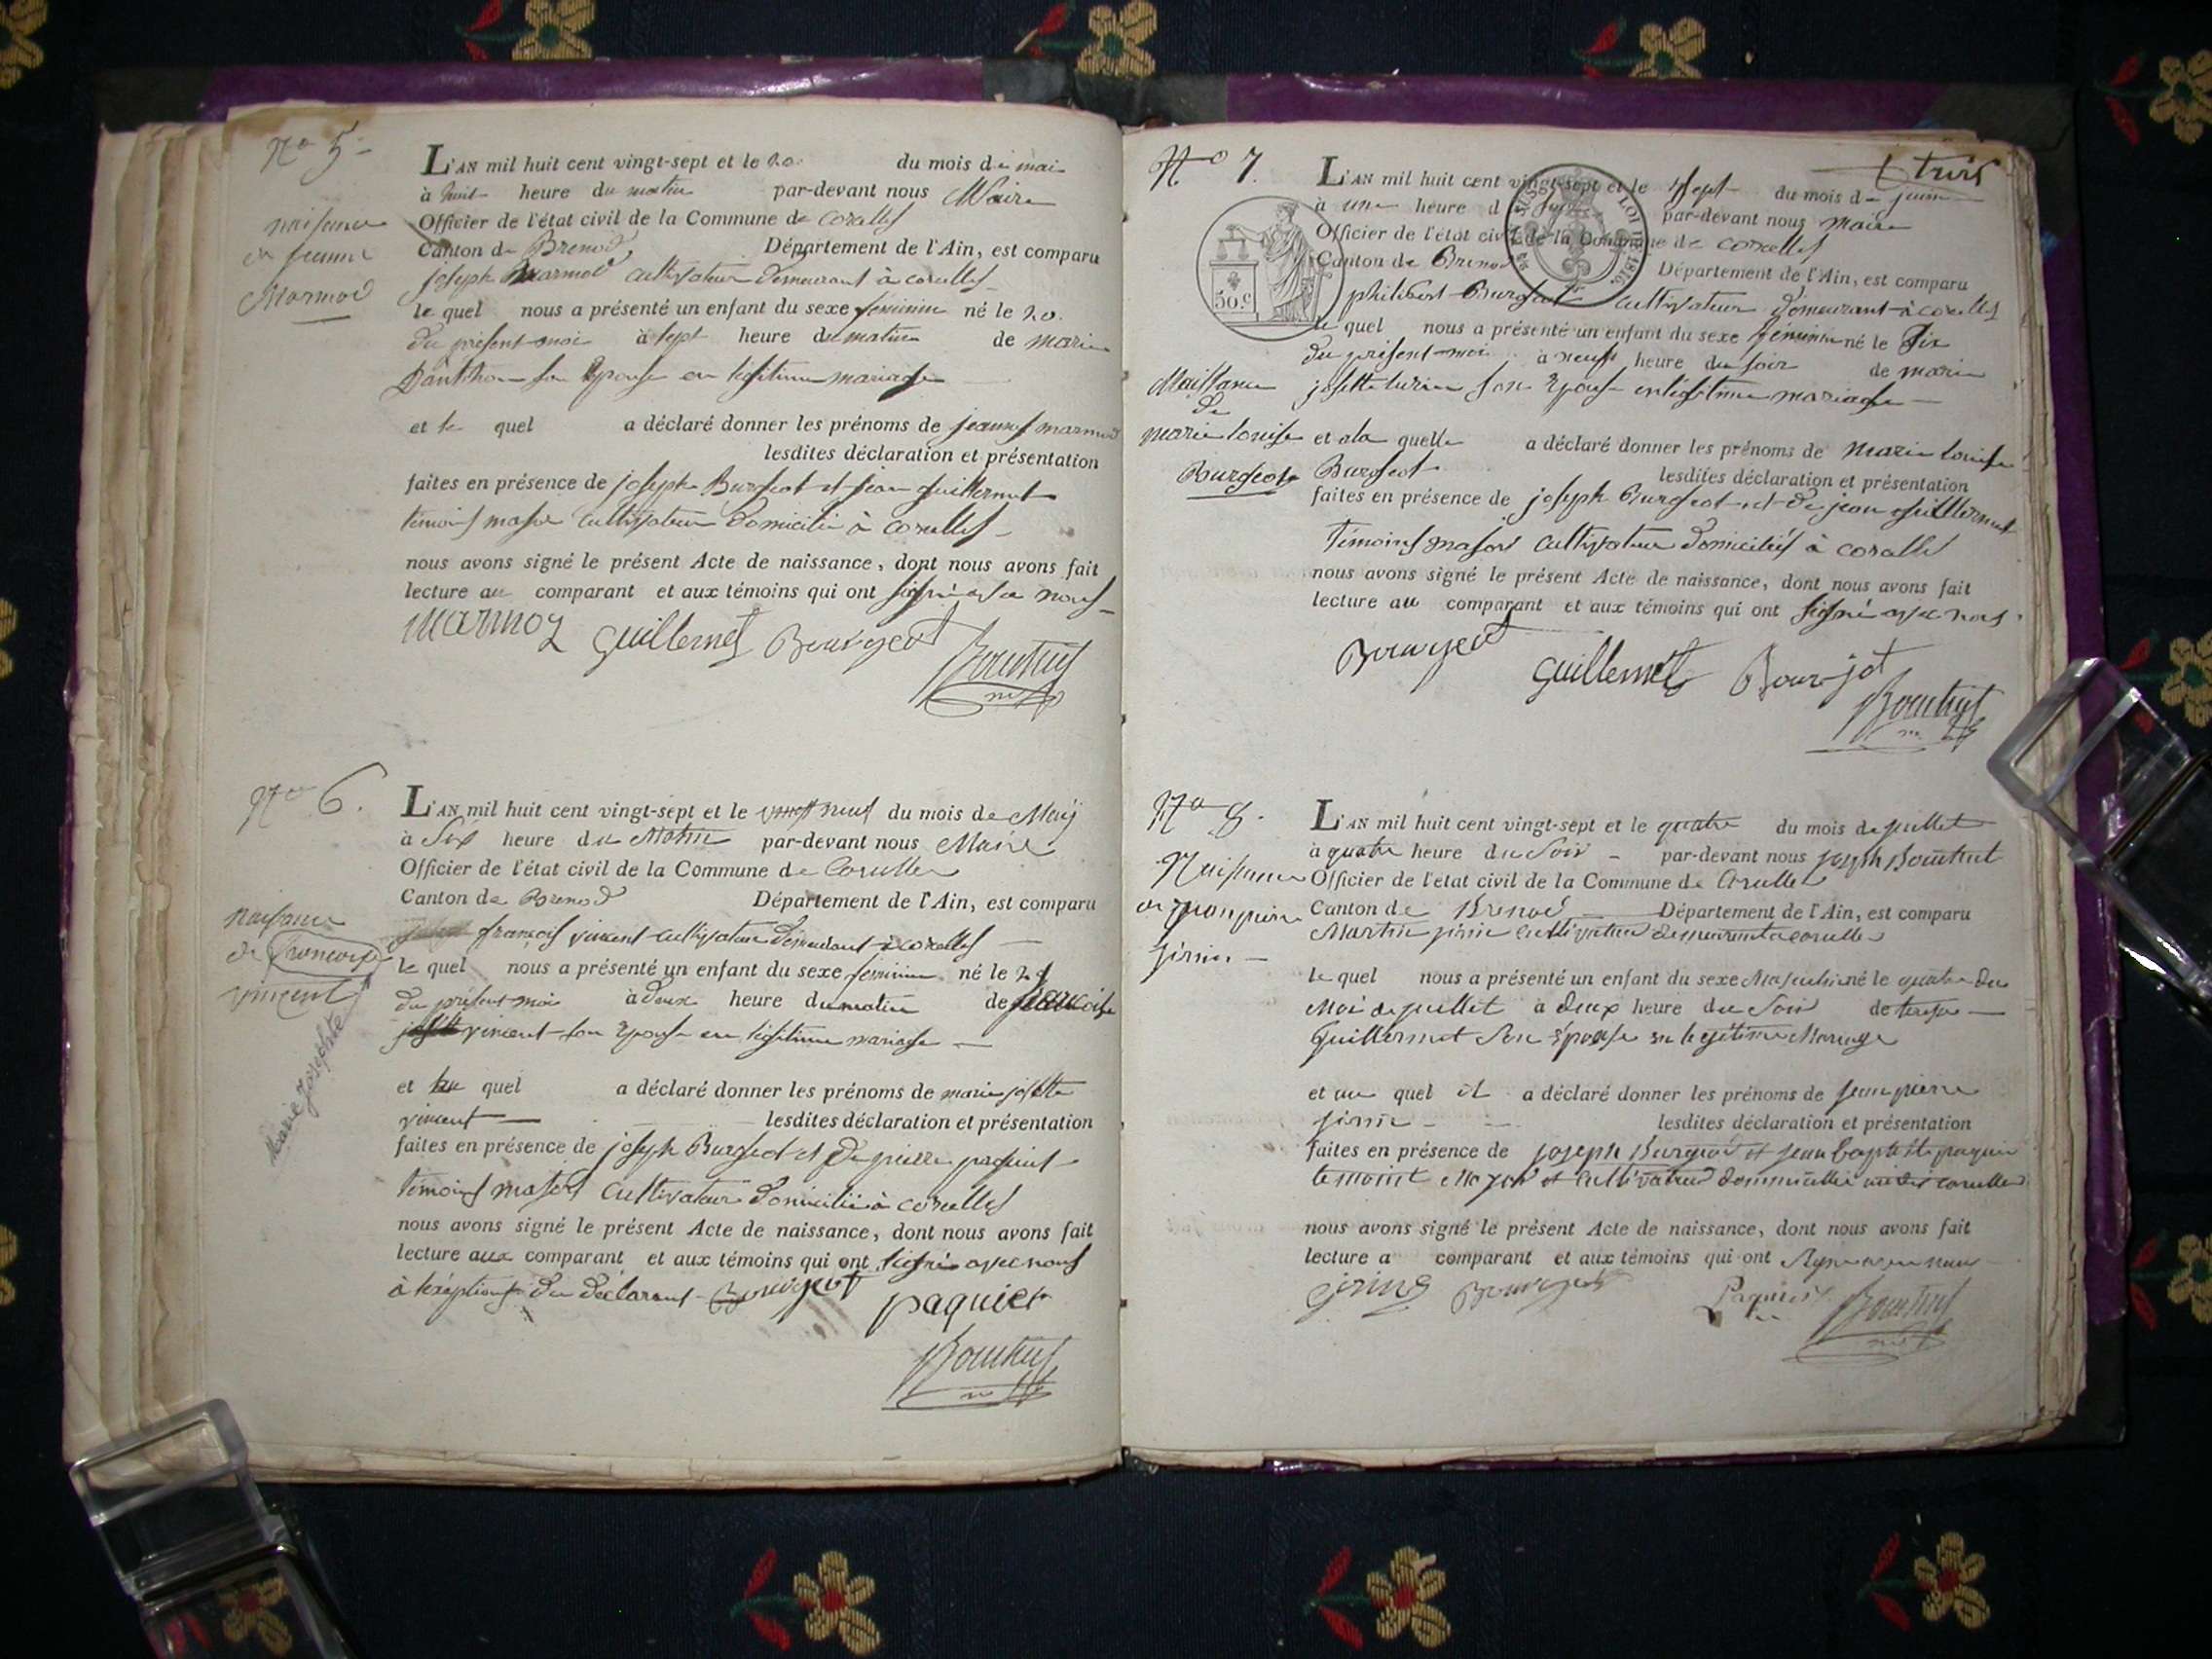 No 5
L'AN mil huit cent vingt-sept et le 20 du mois de mai
à huit heure du matin par-devant nous Maire
Officier de l'état civil de la Commune de Corcelles
Canton de Brenod Département de l'Ain, est comparu
joseph Marmod cultivateur demeurant à corcelles
le quel nous a présenté un enfant du sexe feminin né le 20
du présent moi à sept heure du matin de marie
son Epouse en légitime mariage
naissance
de jeanne
Marmod
et le quel a déclaré donner les prénoms de jeanne marmod
lesdites déclaration et présentation
faites en présence de joseph Burgeot et jean guillermet
témoins major cultivateur domicilié à corcelles
nous avons signé le présent Acte de naissance, dont nous avons fait
lecture au comparant et aux témoins qui ont signé avec nous
marmoz guillermet Bourgeot
No 6.
L'AN mil huit cent vingt-sept et le vingt neuf du mois de May
à Six heure du Matin par-devant nous Maire
Officier de l'état civil de la Commune de Corcelles
Canton de Brenod Département de l'Ain, est comparu
françois vincent cultivateur demeurant à corcelles
naissance
de francoise
vincent
Marie Josephte
le quel nous a présenté un enfant du sexe feminin né le 29
du présent moi à deux heure du matin de francoise
josette vincent son Epouse en légitime mariage
et quel a déclaré donner les prénoms de marie josette
vincent lesdites déclaration et présentation
faites en présence de joseph Burgeot et de pierre paquiet
témoins majors cultivateur domicilié à corcelles
nous avons signé le présent Acte de naissance, dont nous avons fait
lecture aux comparant et aux témoins qui ont signé avec nous
à l'exception du declarant Bourgeot paquiet
No 7.
L'AN mil huit cent vingt-sept et le sept du mois de juin
à une heure d par-devant nous maire
Officier de l'état civil de la Commune de corcelles
Canton de Brenod Département de l'Ain, est comparu
LOI DE 1816
50.c
philibert Burgeot cultivateur demeurant à corcelles
le quel nous a présenté un enfant du sexe féminin né le Six
du présent moi à neuf heure du soir de marie
josette son Epouse en légitime mariage
Naissance
de
marie louise
Burgeot
et a la quelle a déclaré donner les prénoms de marie louise
Burgeot lesdites déclaration et présentation
faites en présence de joseph Burgeot et de jean guillermet
témoins majors cultivateur domiciliés à corcelles
nous avons signé le présent Acte de naissance, dont nous avons fait
lecture au comparant et aux témoins qui ont signé avec nous
Bourgeot guillermet Bourjot
No 8.
L'AN mil huit cent vingt-sept et le quatre du mois de juillet
à quatre heure du Soir par-devant nous joseph
Officier de l'etat civil de la Commune de Corcelles
Canton de Brenod Département de l'Ain, est comparu
Martin cultivateur demeurant a corcelles
Naissance
de jean pierre
le quel nous a présenté un enfant du sexe Masculin né le quatre du
Moi de juillet à deux heure du Soir de
Guillermet Son Epouse en legitime Mariage
et au quel il a déclaré donner les prénoms de jean pierre
lesdites déclaration et présentation
faites en présence de joseph Burgeot et jean baptiste paquiet
temoint Mayor et Cultivateur corcelles
nous avons signé le présent Acte de naissance, dont nous avons fait
lecture a comparant et aux témoins qui ont
Bourgeot Paquiet